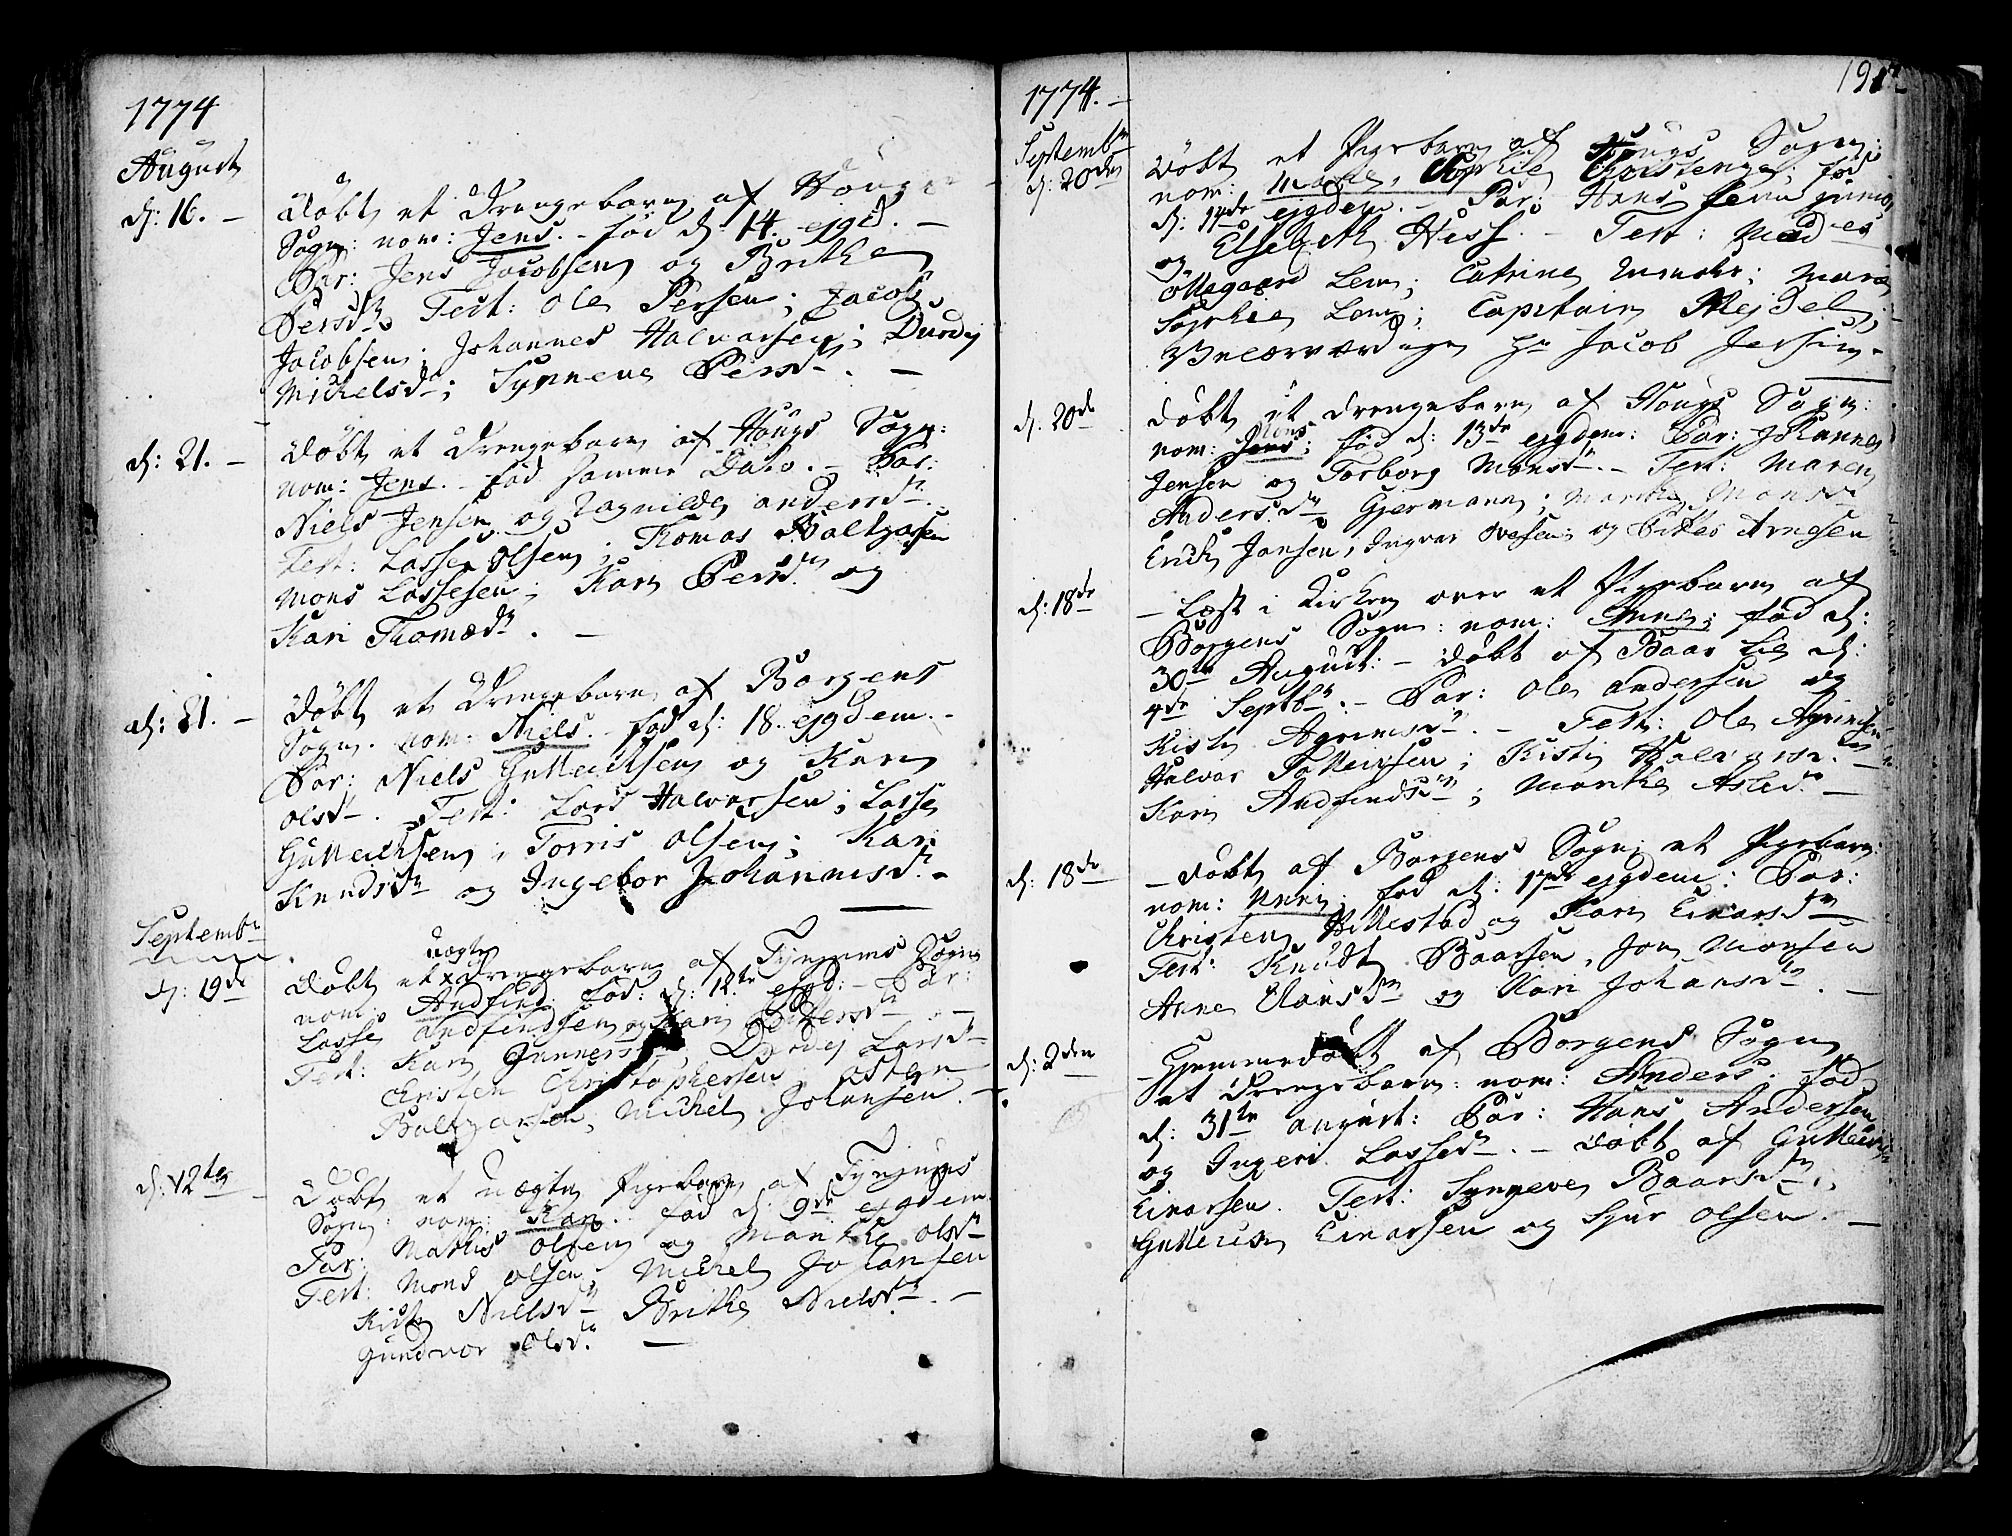 1774
August
d: 16. -
Döbt et Drengebarn af Hougs
Sogn: nom: Jens. - Föd d: 14. ejgd. -
Par: Jens Jacobsen og Brithe
Persdr. Test: Ole Persen; Jacob
Jacobsen; Johannes Halvarsen; Durdej
Michelsdr; Synneve Persdr. -
d: 21. -
Döbt et Drengebarn af Hougs Sogn:
nom: Jens. - föd samme Dato. - Par:
Niels Jensen og Ragnilde andersdr.
Test: Lasse Olsen; Tomas Baltzarsen
Mons Lassesen; Kari Persdr. og
Kari Thomædr. -
d: 21. -
Döbt et Drengebarn af Borgens
Sogn. nom: Niels. - föd d: 18. ejgdem. -
Par: Niels Gutteichsen og Kari
olsdr. Test: Lars Halvarsen; Lasse
Gutteichsen; Torris Olsen; Kari
Knudsdr og Ingebor Johannisdr. -
Septembr
d: 19de
Uægte
Döbt et Drengebarn af Tynjums Sogn
nom: Andfind. föd: d: 12te ejgd: - Par:
Lasse Andfindsen og Kari
Test: Kari Gunnersdr, Durdej Larsdr
Christen Christophersen; Osten
Baltzarsen; Michel Johansen. -
d: 12ten
Döbt et Uægte Pigebarn af Tynjums
Sogn: nom: Kari. föd d: 9de ejgdem.
Par: Mathis Olsen og Marthe olsdr
Test: Mons Olsen, Michel Johansen
Kisti Nielsdr Brithe Nielsdr. -
Gundvor Olsdr. -
1774. -
Septembr
d: 20den
Döbt et Pigebarn af Hougs Sogn:
nom: Marie, Sophie Christense; föd
d: 14de ejgdem. - Par: Hans Lem junior
og Elsebeth Hess. - Test: Mad es
Ottegaard Lem; Catrine Munche; Maren
Sophie Lem; Capitain Mejdel;
Velærværdige Hr Jacob Jersin. -
d: 20de
Döbt et Drengebarn af Hougs Sogn:
nom: Jens; föd d: 13de ejgdem: Par: Johannes
Jensen og Torborg Monsdr. - Test: Maren
Andersdr Gjermann; Marthe Monsdr
Erich Jansen, Ingvar Ovesen; og Peter Arnesen
d: 18de
- Læst i Kirken over et Pigebarn af
Borgens Sogn: nom: Anne; föd d:
30te August: - Döbt af Baar Lie d:
4de Septbr. - Par: Ole andersen og
Kisti Agrimsdr. - Test: Ole Agrimsen
Halvor Tolleivsen; Kisti Halvorsdr. -
Kari Andfindsdr; Marthe Aslesdr. -
d: 18de
- Döbt af Borgens Sogn; et Pigebarn:
nom: Anne; föd d: 17de ejgdem: Par:
Christen Hillestad og Kari Einarsdr
Test: Knudt Baarsen, Jon Monsen
Anne Clausdr og Kari Johansdr. -
d: 2den
- Hjemmedöbt af Borgens Sogn
et Drengebarn: nom: Anders. föd
d: 31te august: Par: Hans Andersen
og Ingeri Lassedr. - Döbt af Gutteich
Einarsen. Test: Synneve Baarsdr;
Gutteich Einarsen og Sjur Olsen. -